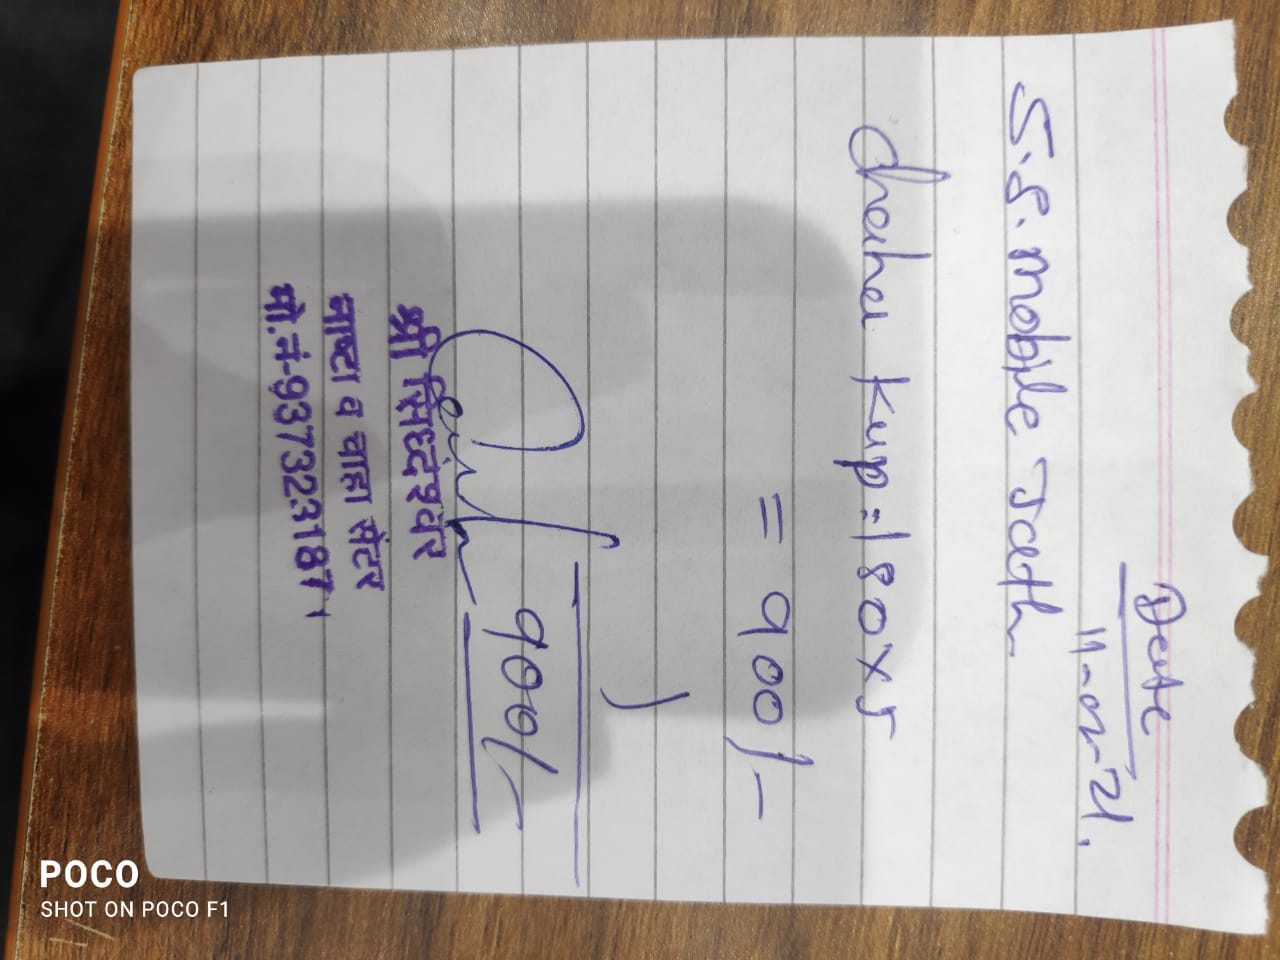 Date
S.S. mobile Jath.
Chaha Kup = 180 x 5
= 900/-
900/-
श्री सिद्देश्वर
नाष्टा व चाहा सेंटर
मो.नं-9373231871
POCO
SHOT ON POCO F1